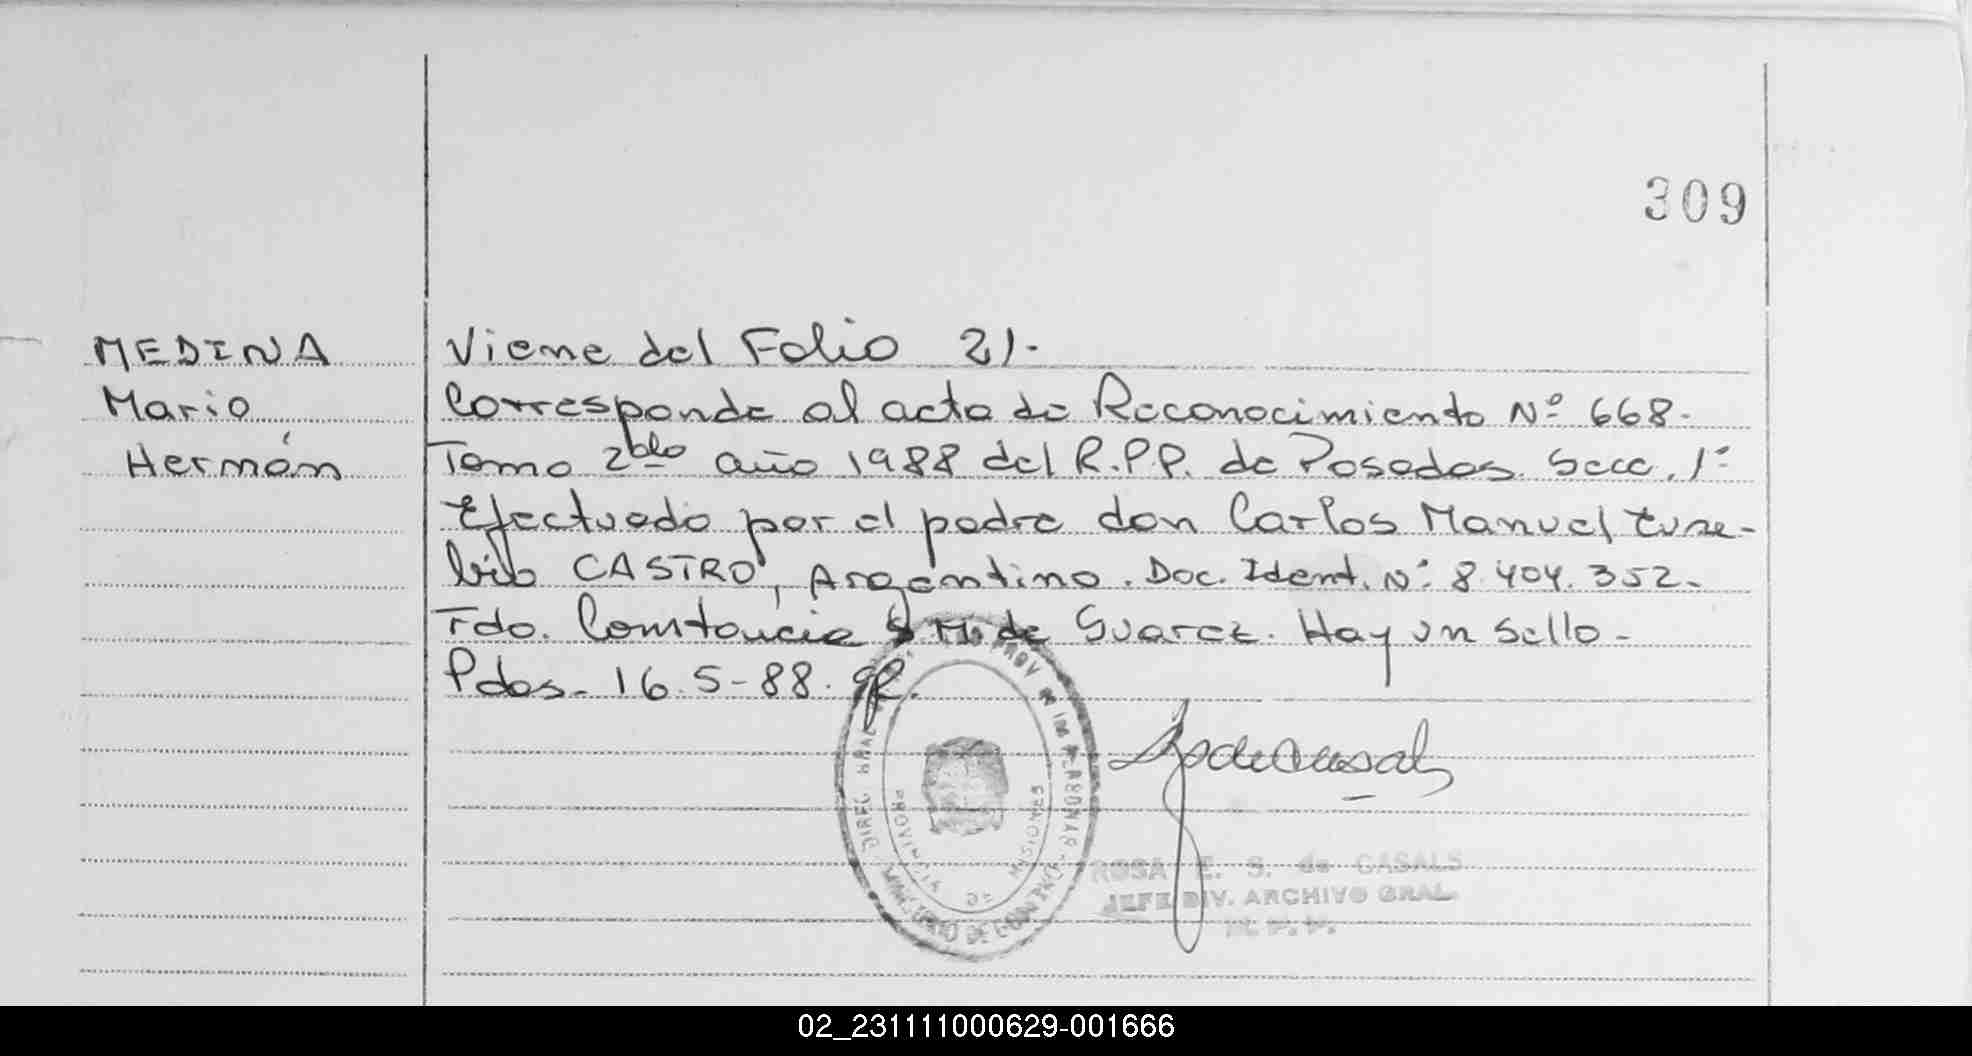 309
MEDINA
Mario
Hernán
Viene del Folio 21.
Corresponde al acta de Reconocimiento Nº 668.
Tomo 2blo año 1988 del R.P.P. de Posadas. Secc. 1º
Efectuado por el padre don Carlos Manuel Euse-
bio CASTRO, Argentino. Doc. Ident. Nº 8.404.352.
Fdo. Constancia S M. de Suarez. Hay un sello.
Pdas. 16.5-88.
DIREC GRAL PROV DE LAS PERSONAS
MINISTERIO DE GOBIERNO
PROVINCIA DE MISIONES
ROSA E. S. de CASALS
JEFE DIV. ARCHIVO GRAL.
02_231111000629-001666